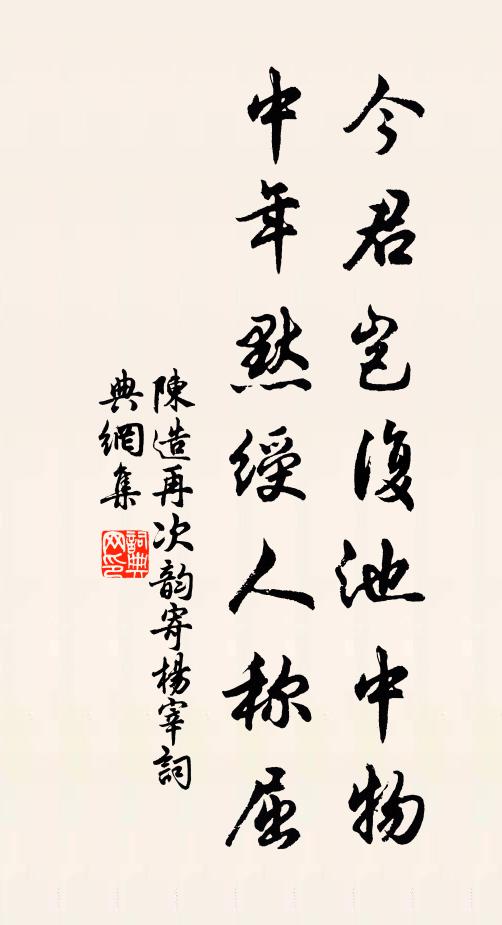 今君岂復池中物
中年黙綬人称屈
陳造再次韵寄楊宰詞
典網集
詞典网印